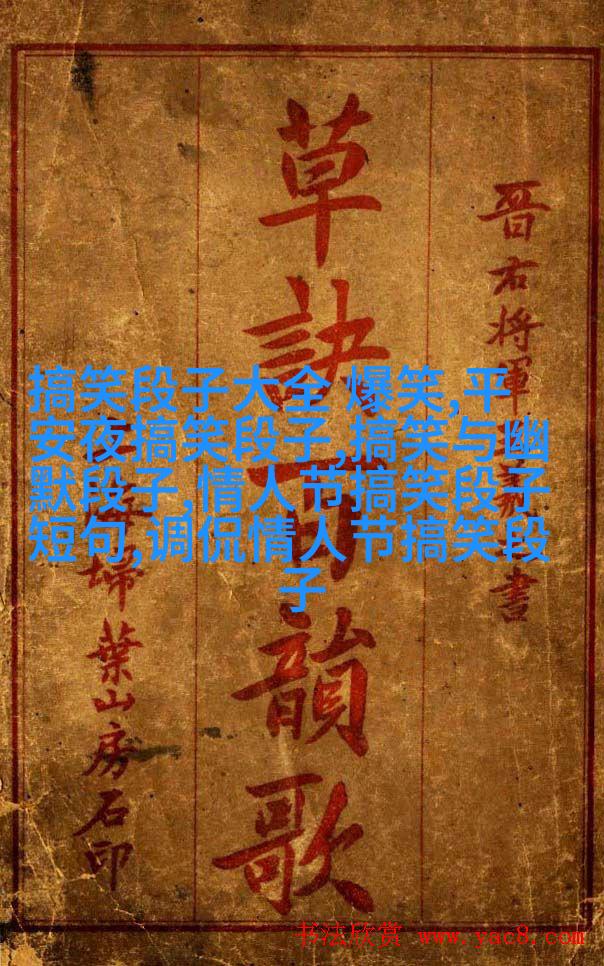 晋右将軍王羲之書
草訣百韻歌
掃葉山房石印
搞笑段子大全 爆笑,平
安夜搞笑段子,搞笑与幽
默段子,情人节搞笑段子
短句,调侃情人节搞笑段
子
书法欣赏 www.yac8.com